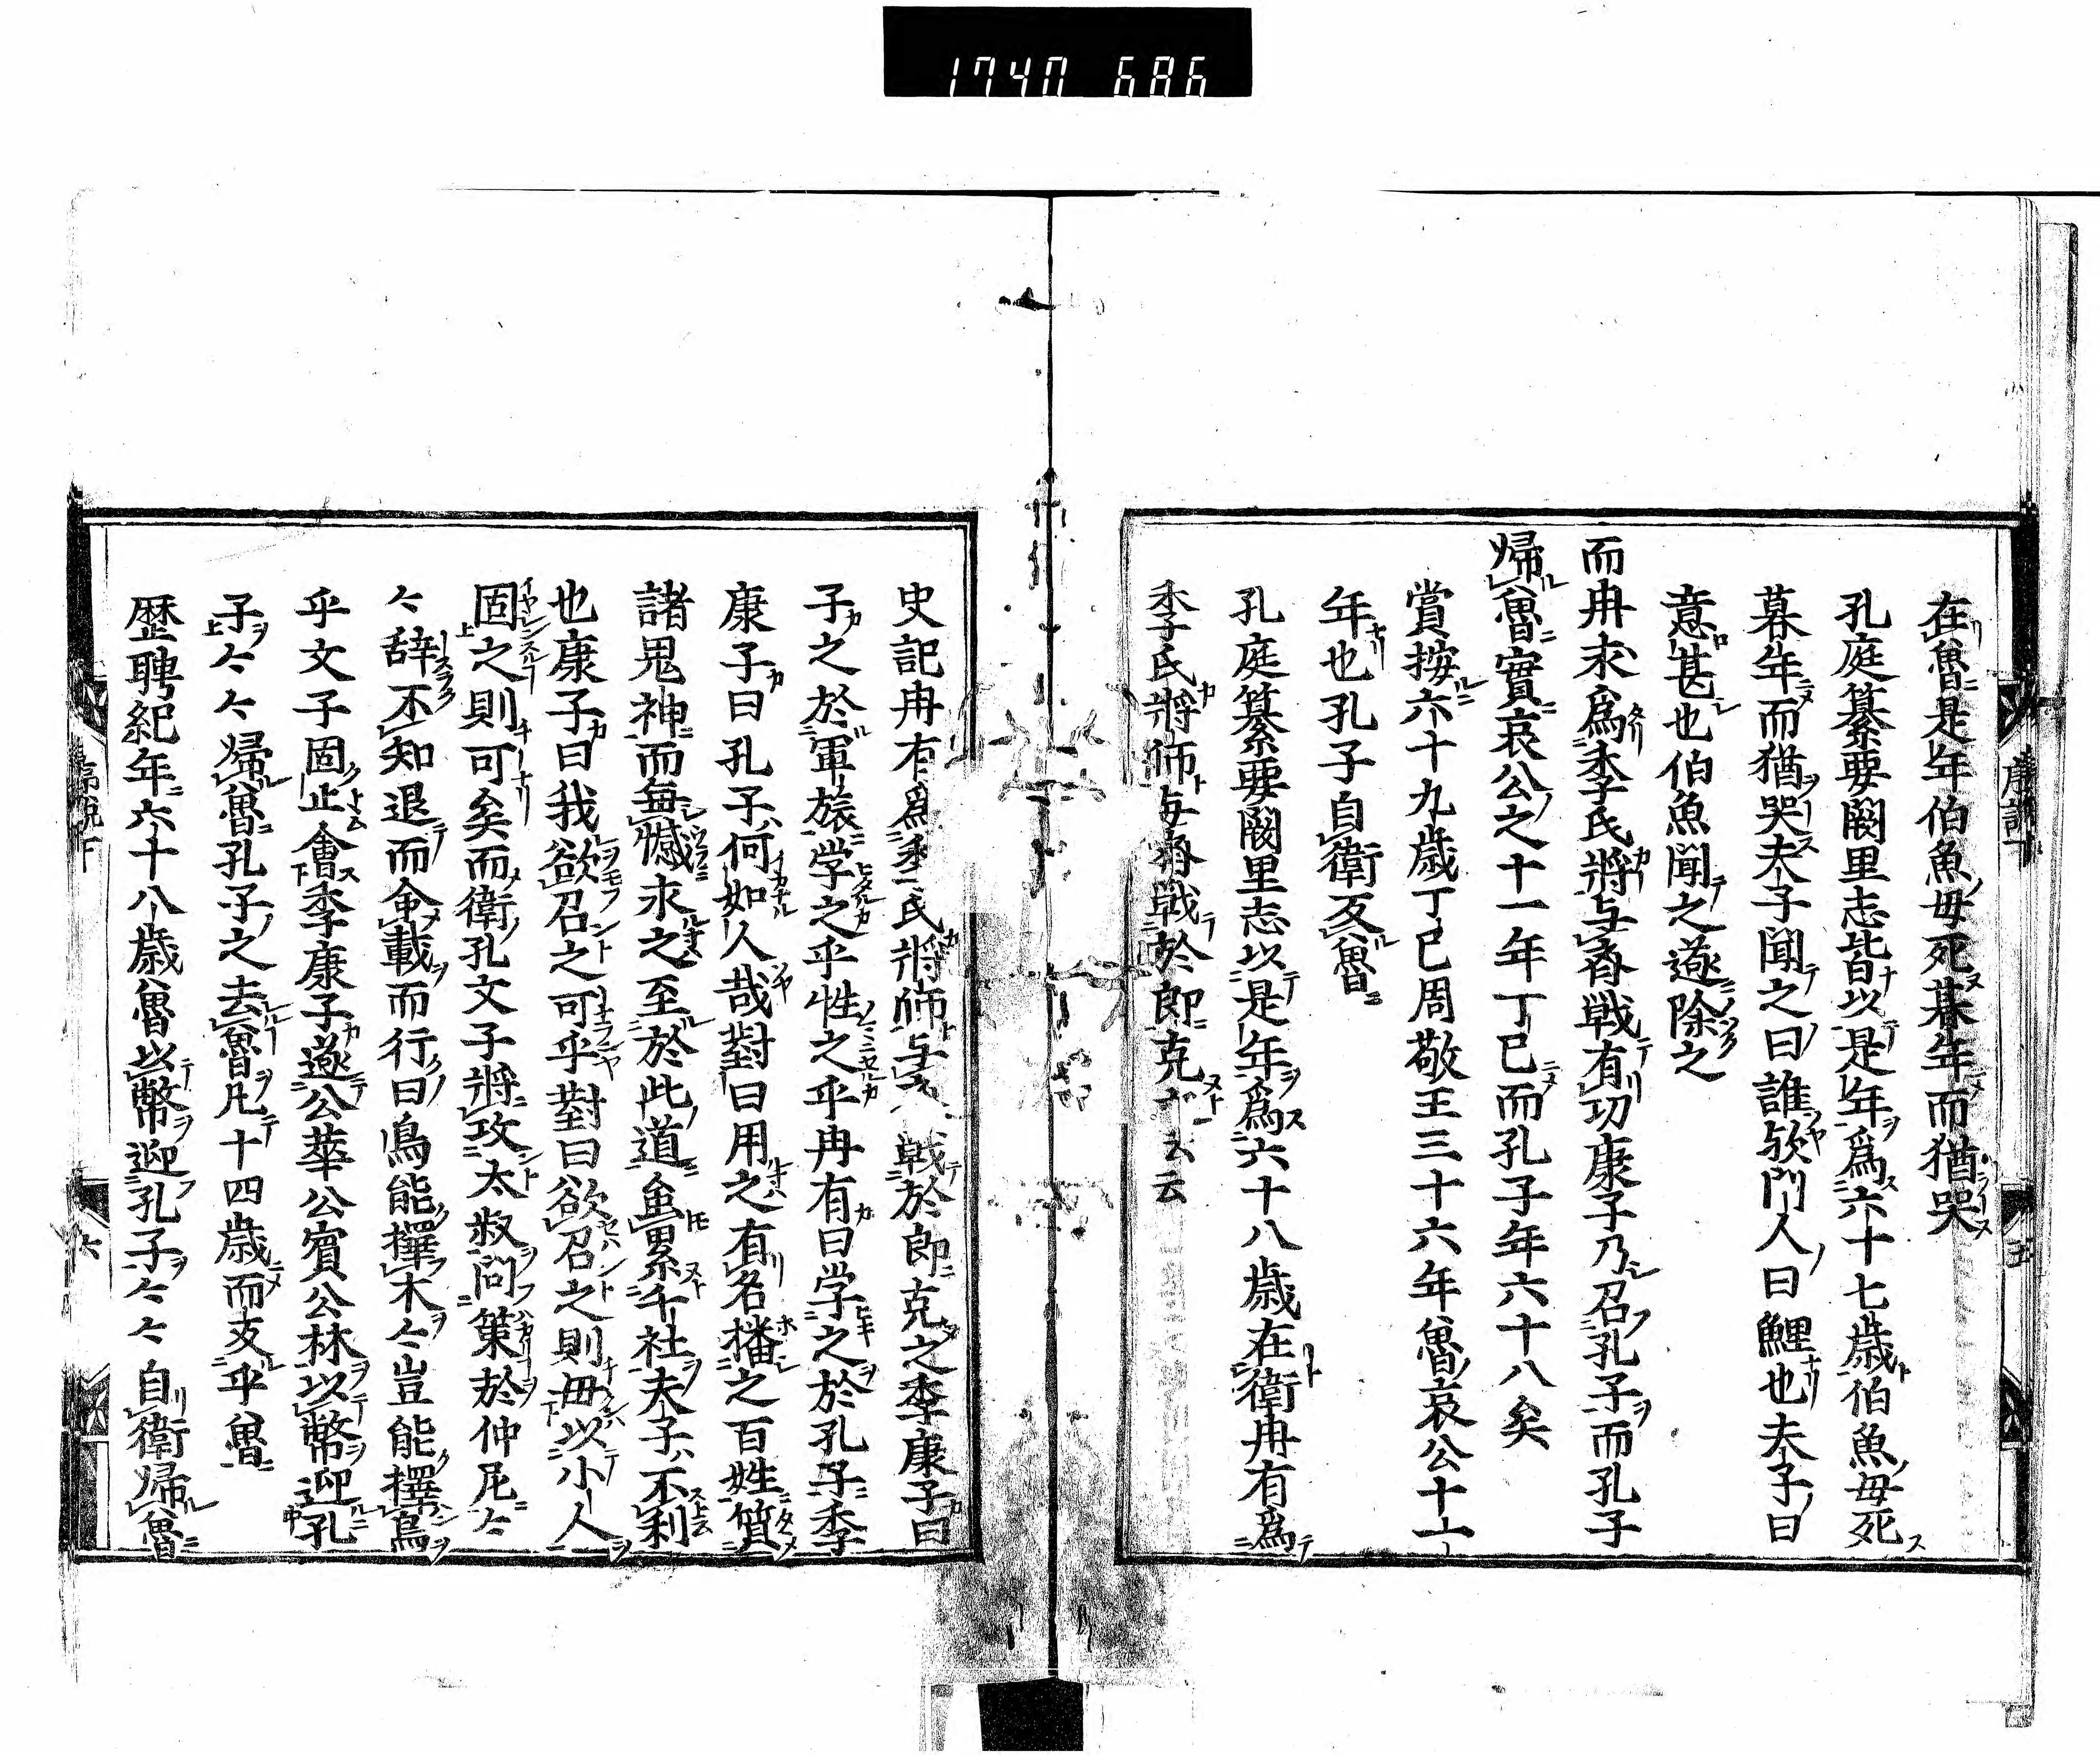 1740 686
在魯是年伯魚母死朞年而猶哭
孔庭纂要闕里志皆以是年爲六十七歳伯魚母死
朞年而猶哭夫子聞之曰誰欤門人曰鯉也夫子曰
意甚也伯魚聞之遂除之
而冉求爲季氏將与齊戦有功康子乃召孔子而孔子
帰魯實哀公之十一年丁巳而孔子年六十八矣
賞按六十九歳丁巳周敬王三十六年魯哀公十一
年也孔子自衛反魯
孔庭纂要闕里志以是年爲六十八歳在衛冉有爲
季氏將師与齊戦於郎克云云
史記冉有爲季氏將師与戦於郎克之季康子曰
子之於軍旅学之乎性之乎冉有曰学之於孔子季
康子曰孔子何如人哉對曰用之有名播之百姓質
諸鬼神而無憾求之至於此道虽累千社夫子不利
也康子曰我欲召之可乎對曰欲召之則毋以小人
固之則可矣而衛孔文子將攻太叔問策於仲尼々
々辞不知退而命載而行曰鳥能擇木々豈能擇鳥
乎文子固止會季康子遂公華公賓公林以幣迎孔
子々々帰魯孔子之去魯凡十四歳而支乎魯
歴聘紀年六十八歳魯以幣迎孔子々々自衛帰魯
六